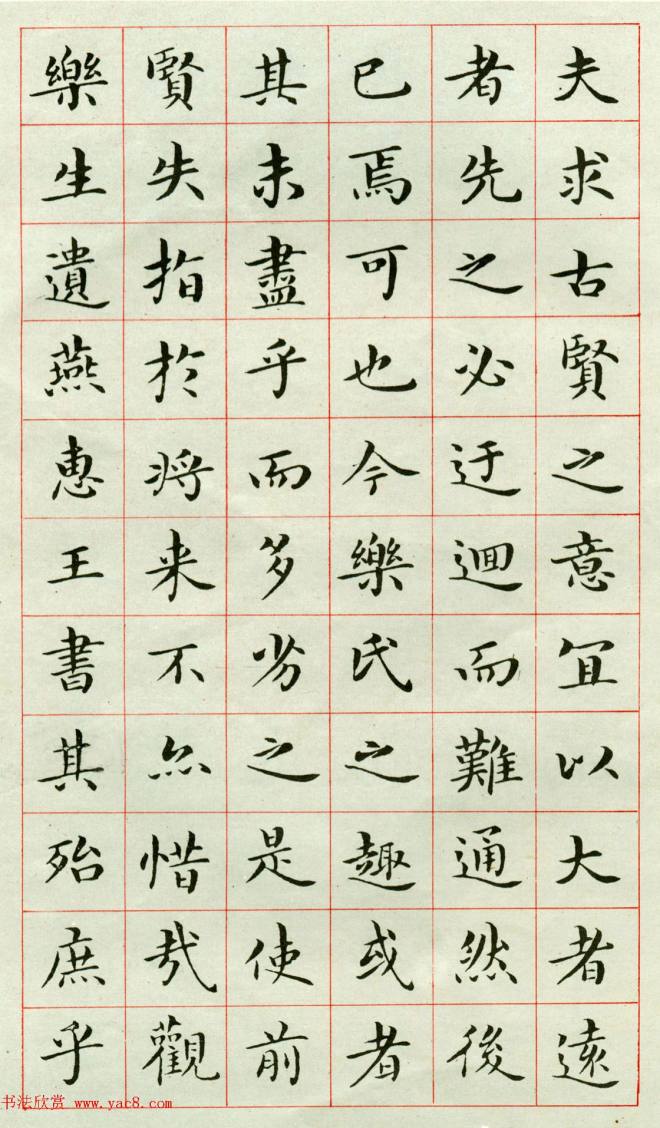 夫求古賢之意宜以大者遠
者先之必迂迴而難通然後
已焉可也今樂氏之趣或者
其未盡乎而多劣之是使前
賢失指於将来不亦惜哉觀
樂生遺燕惠王書其殆庶乎
书法欣赏 www.yac8.com